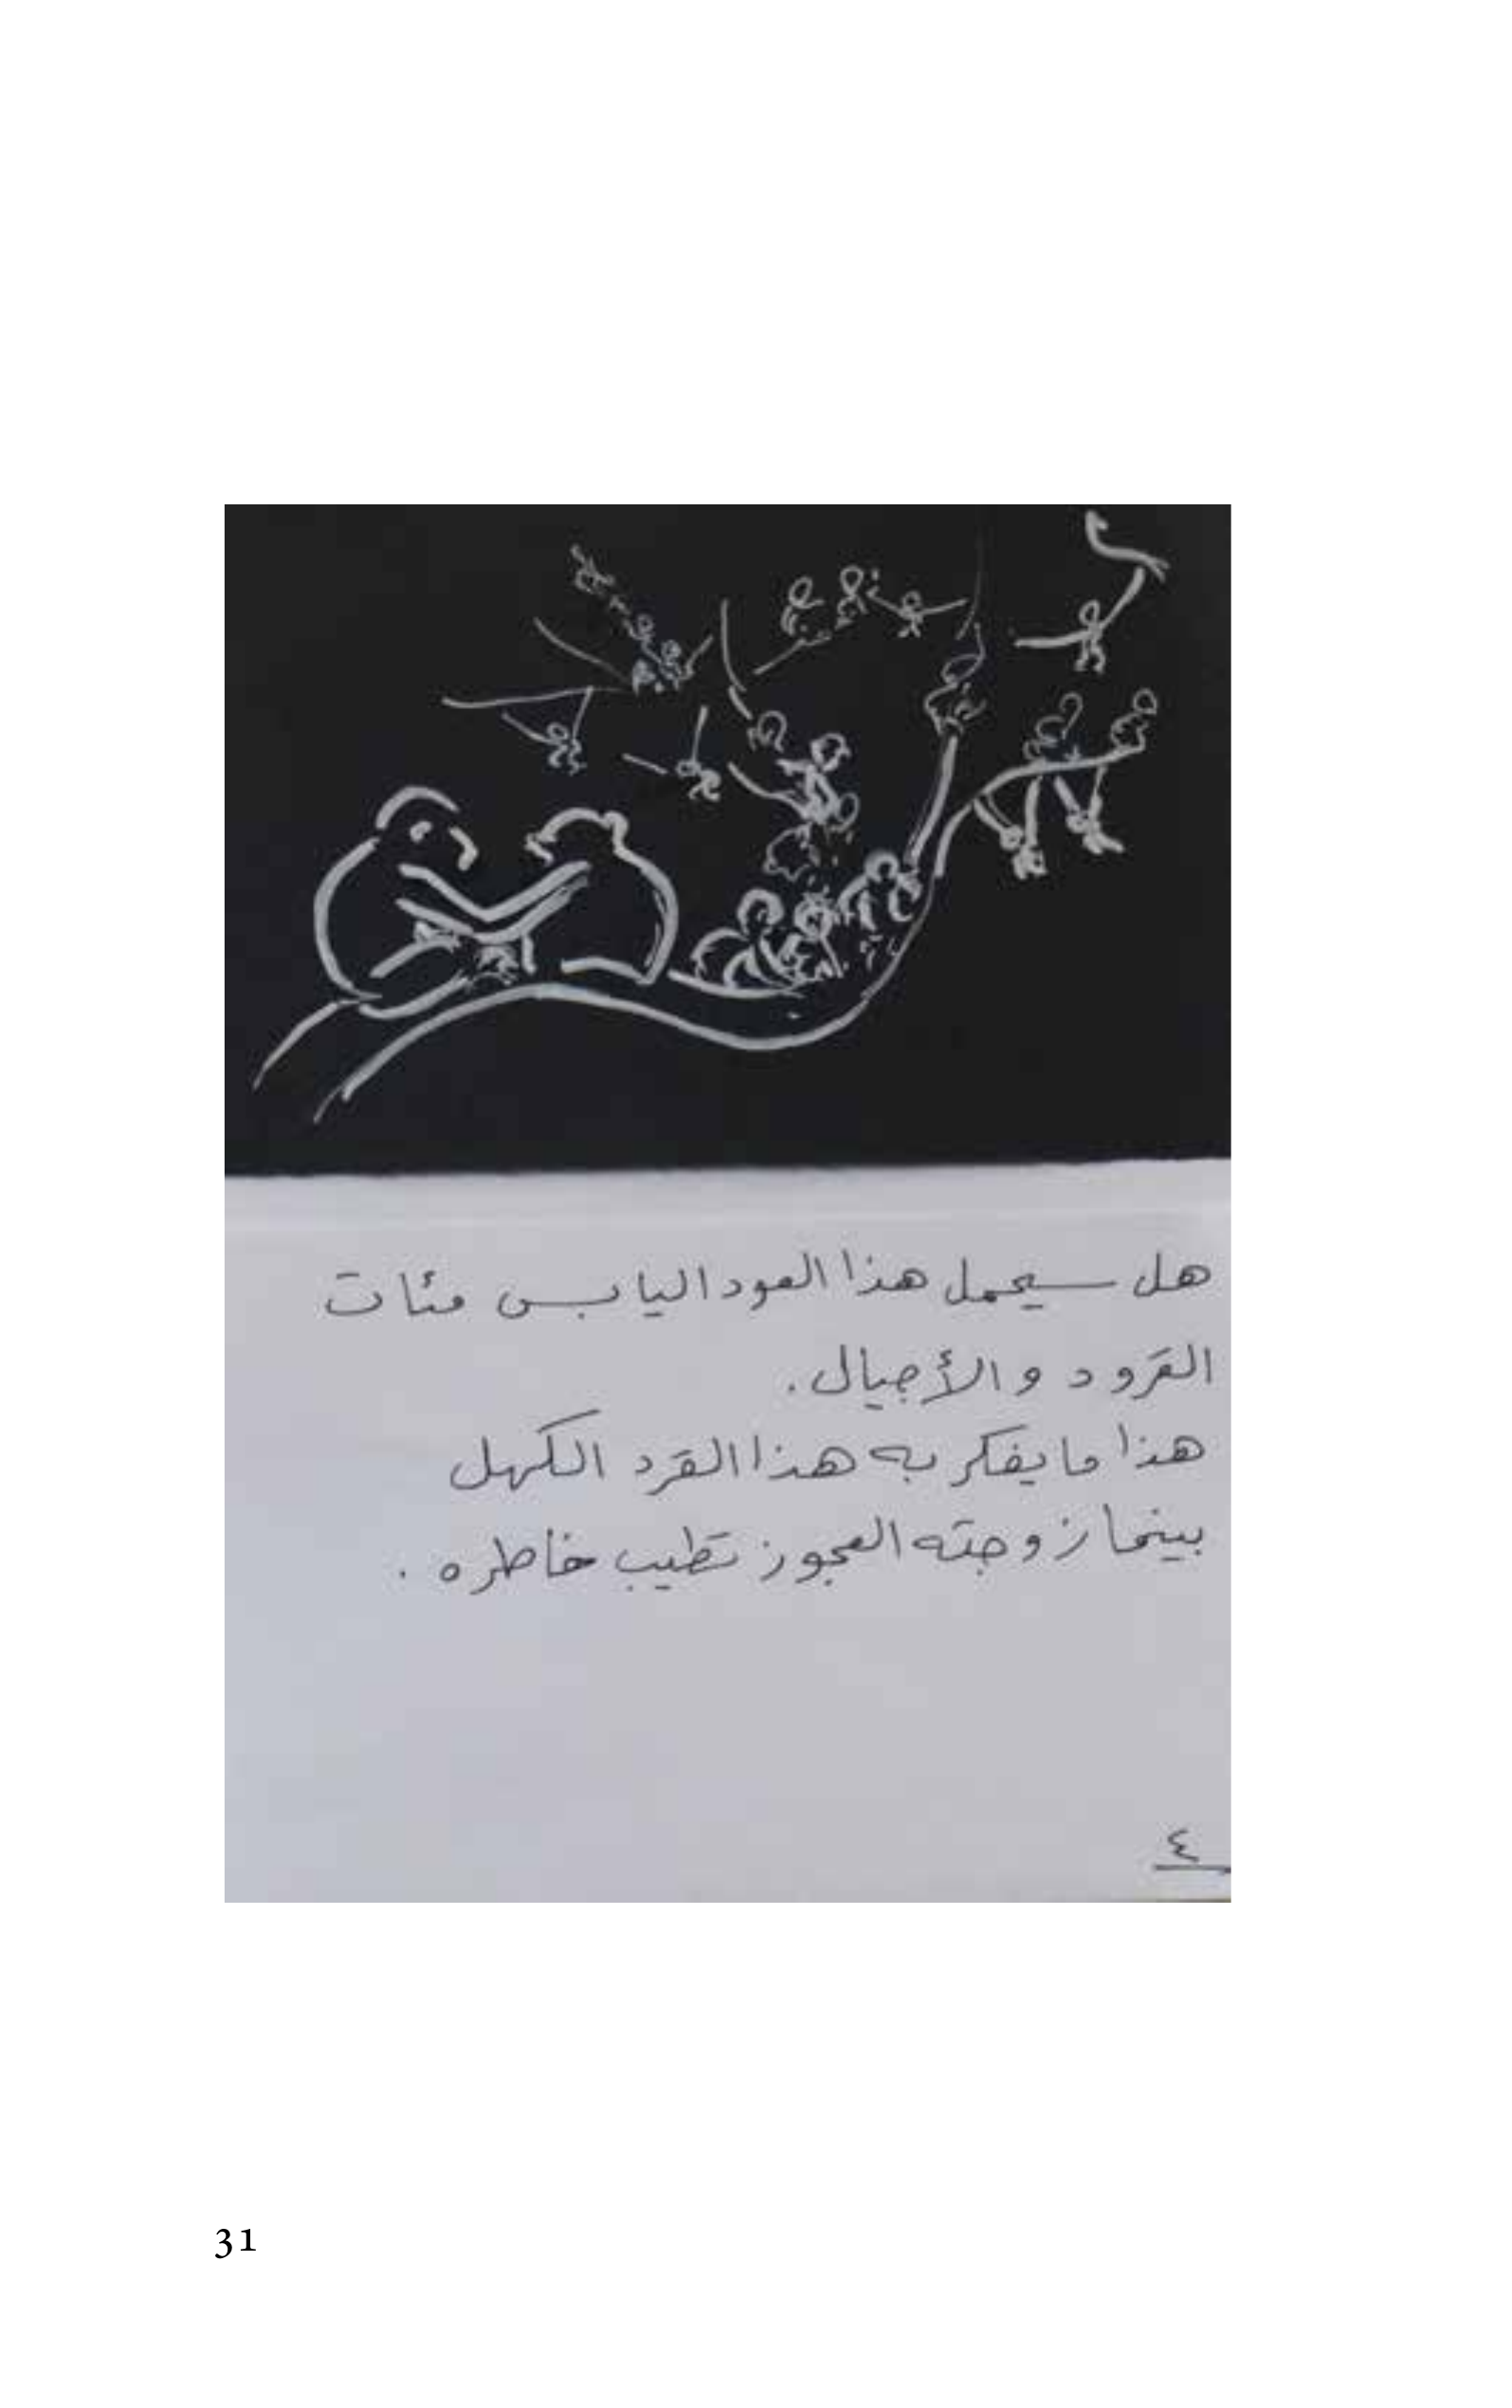 هل سيحمل هذا العود اليابس مئات
القرود والأجيال.
هذا ما يفكر به هذا القرد الكهل
بينما زوجته العجوز تطيب خاطره.
٤
31